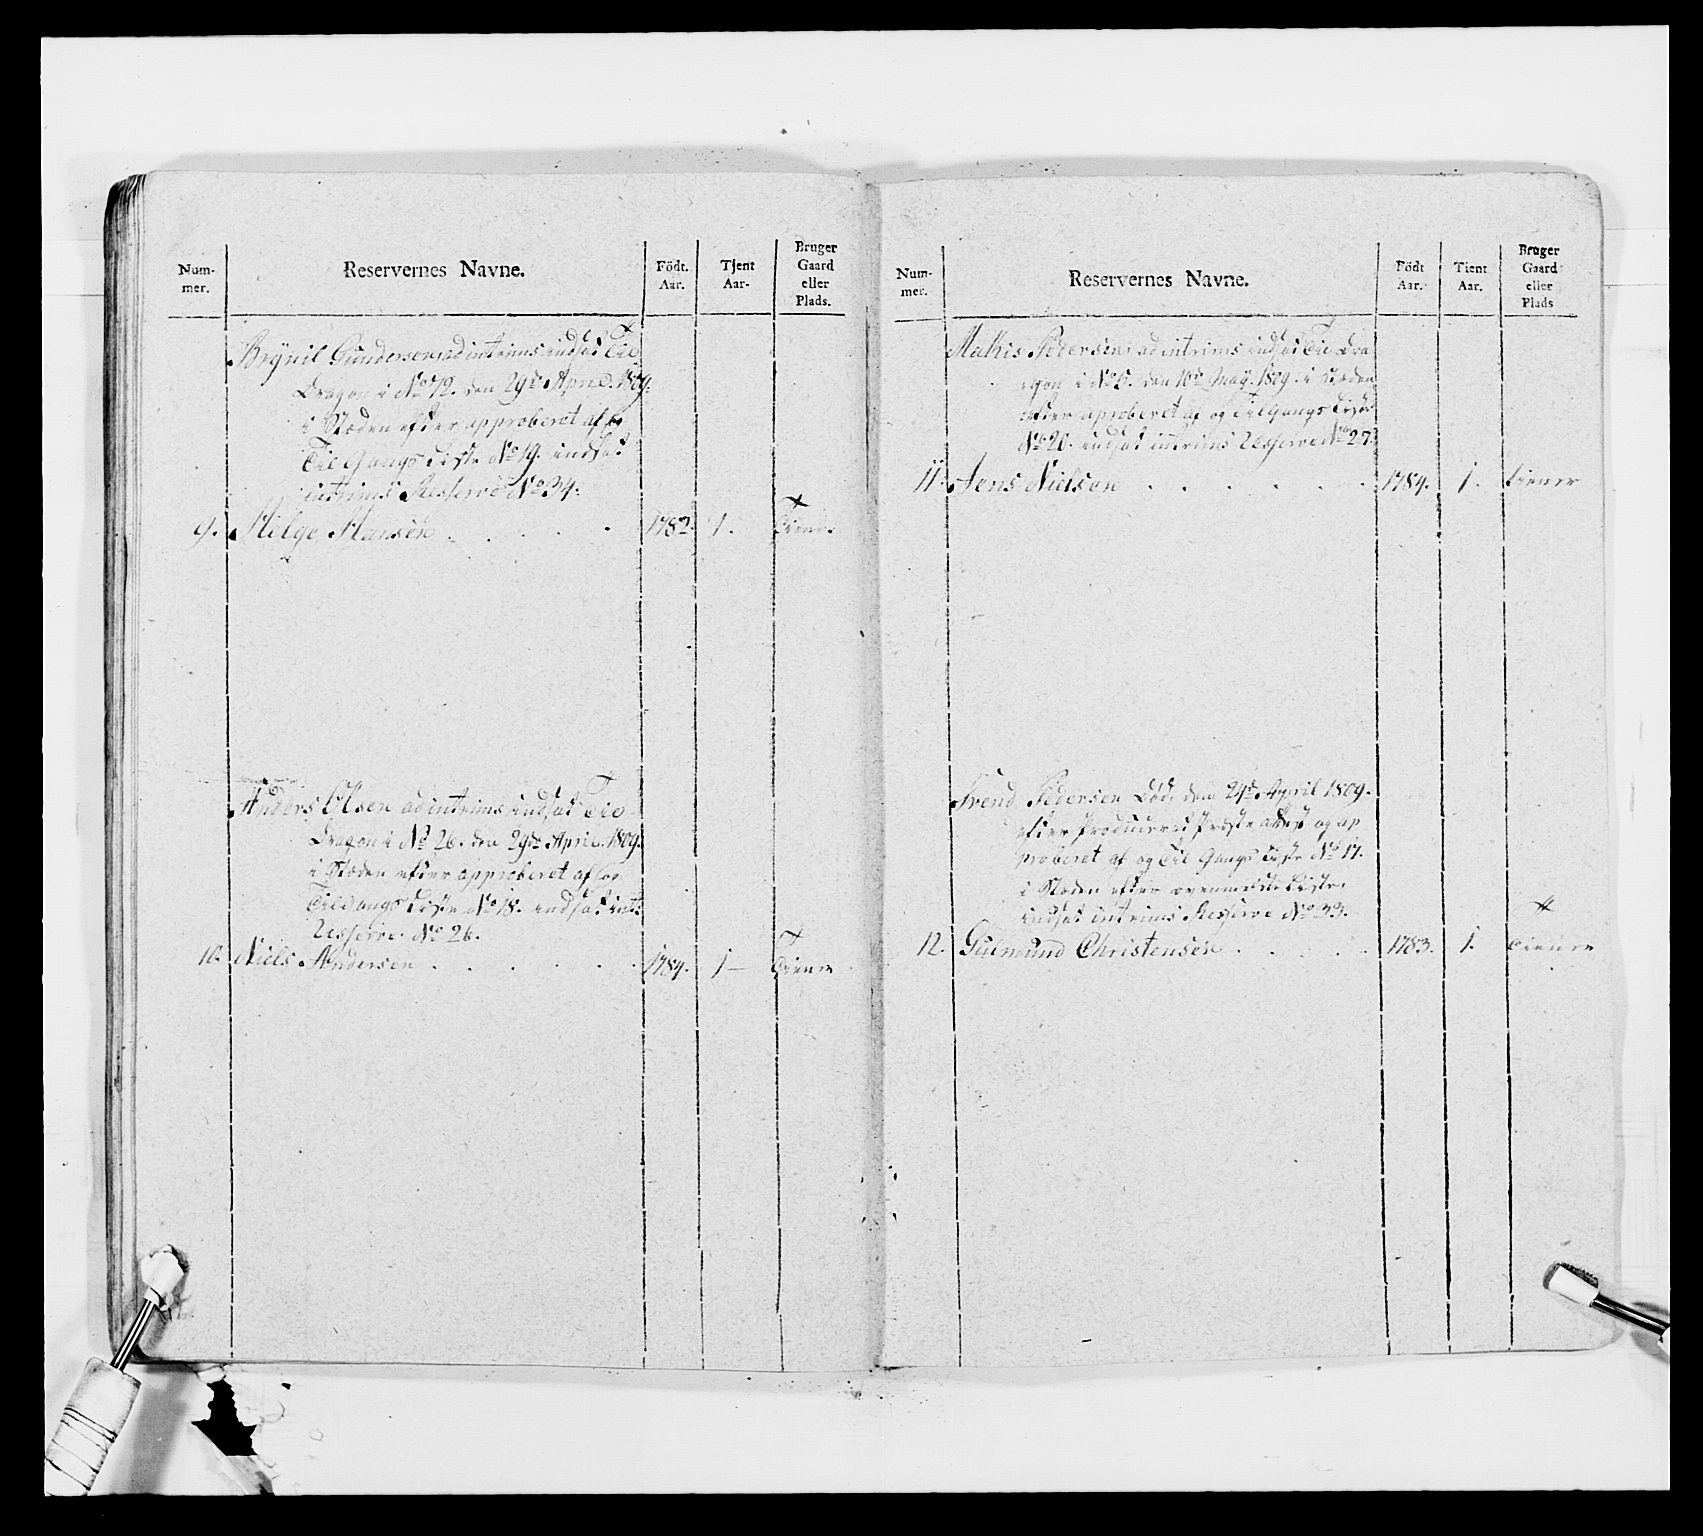 Num-
mer.
Reservernes Navne.
Födt.
Aar.
Tjent
Aar-
Bruger
Gaard
eller
Plads.
Brynil Gundersen ad intrims indsat Til
Dragon i No 72. den 29de April. 1809.
i Stæden efter approberet af og
Til Gangs Liste No 19. indsat
intrims Resserve No 34.
9. Helge Hansen 1782. 1. Tiener
Anders Olsen ad intrims indsat Til
Dragon i No 26. den 29de April. 1809.
i Stæden efter approberet af og
Til Gangs Liste No 18. indsat int:
Resserve No 26.
10. Niels Andersen 1784. 1 Tiener
Num-
mer.
Reservernes Navne.
Födt
Aar.
Tient
Aar.
Bruger
Gaard
eller
Plads
Pedersen ad intrims indsat Til Dra
gon i No 5. den 10de May. 1809. i Stæden
efter aproberet af og Til Gangs Liste
No 20. indsat intrims Resserve No 27.
11. Jens Nielsen 1784. 1. Tiener
Trend Pedersen Död, den 24de April 1809.
efter Produceret Præste attest og ap
proberet af og Til Gangs Liste No 17.
i Stæden efter ovenmeldte Liste.
indsat intrims Resserve No 33.
12. Gulmund Christensen 1783. 1. Tiener